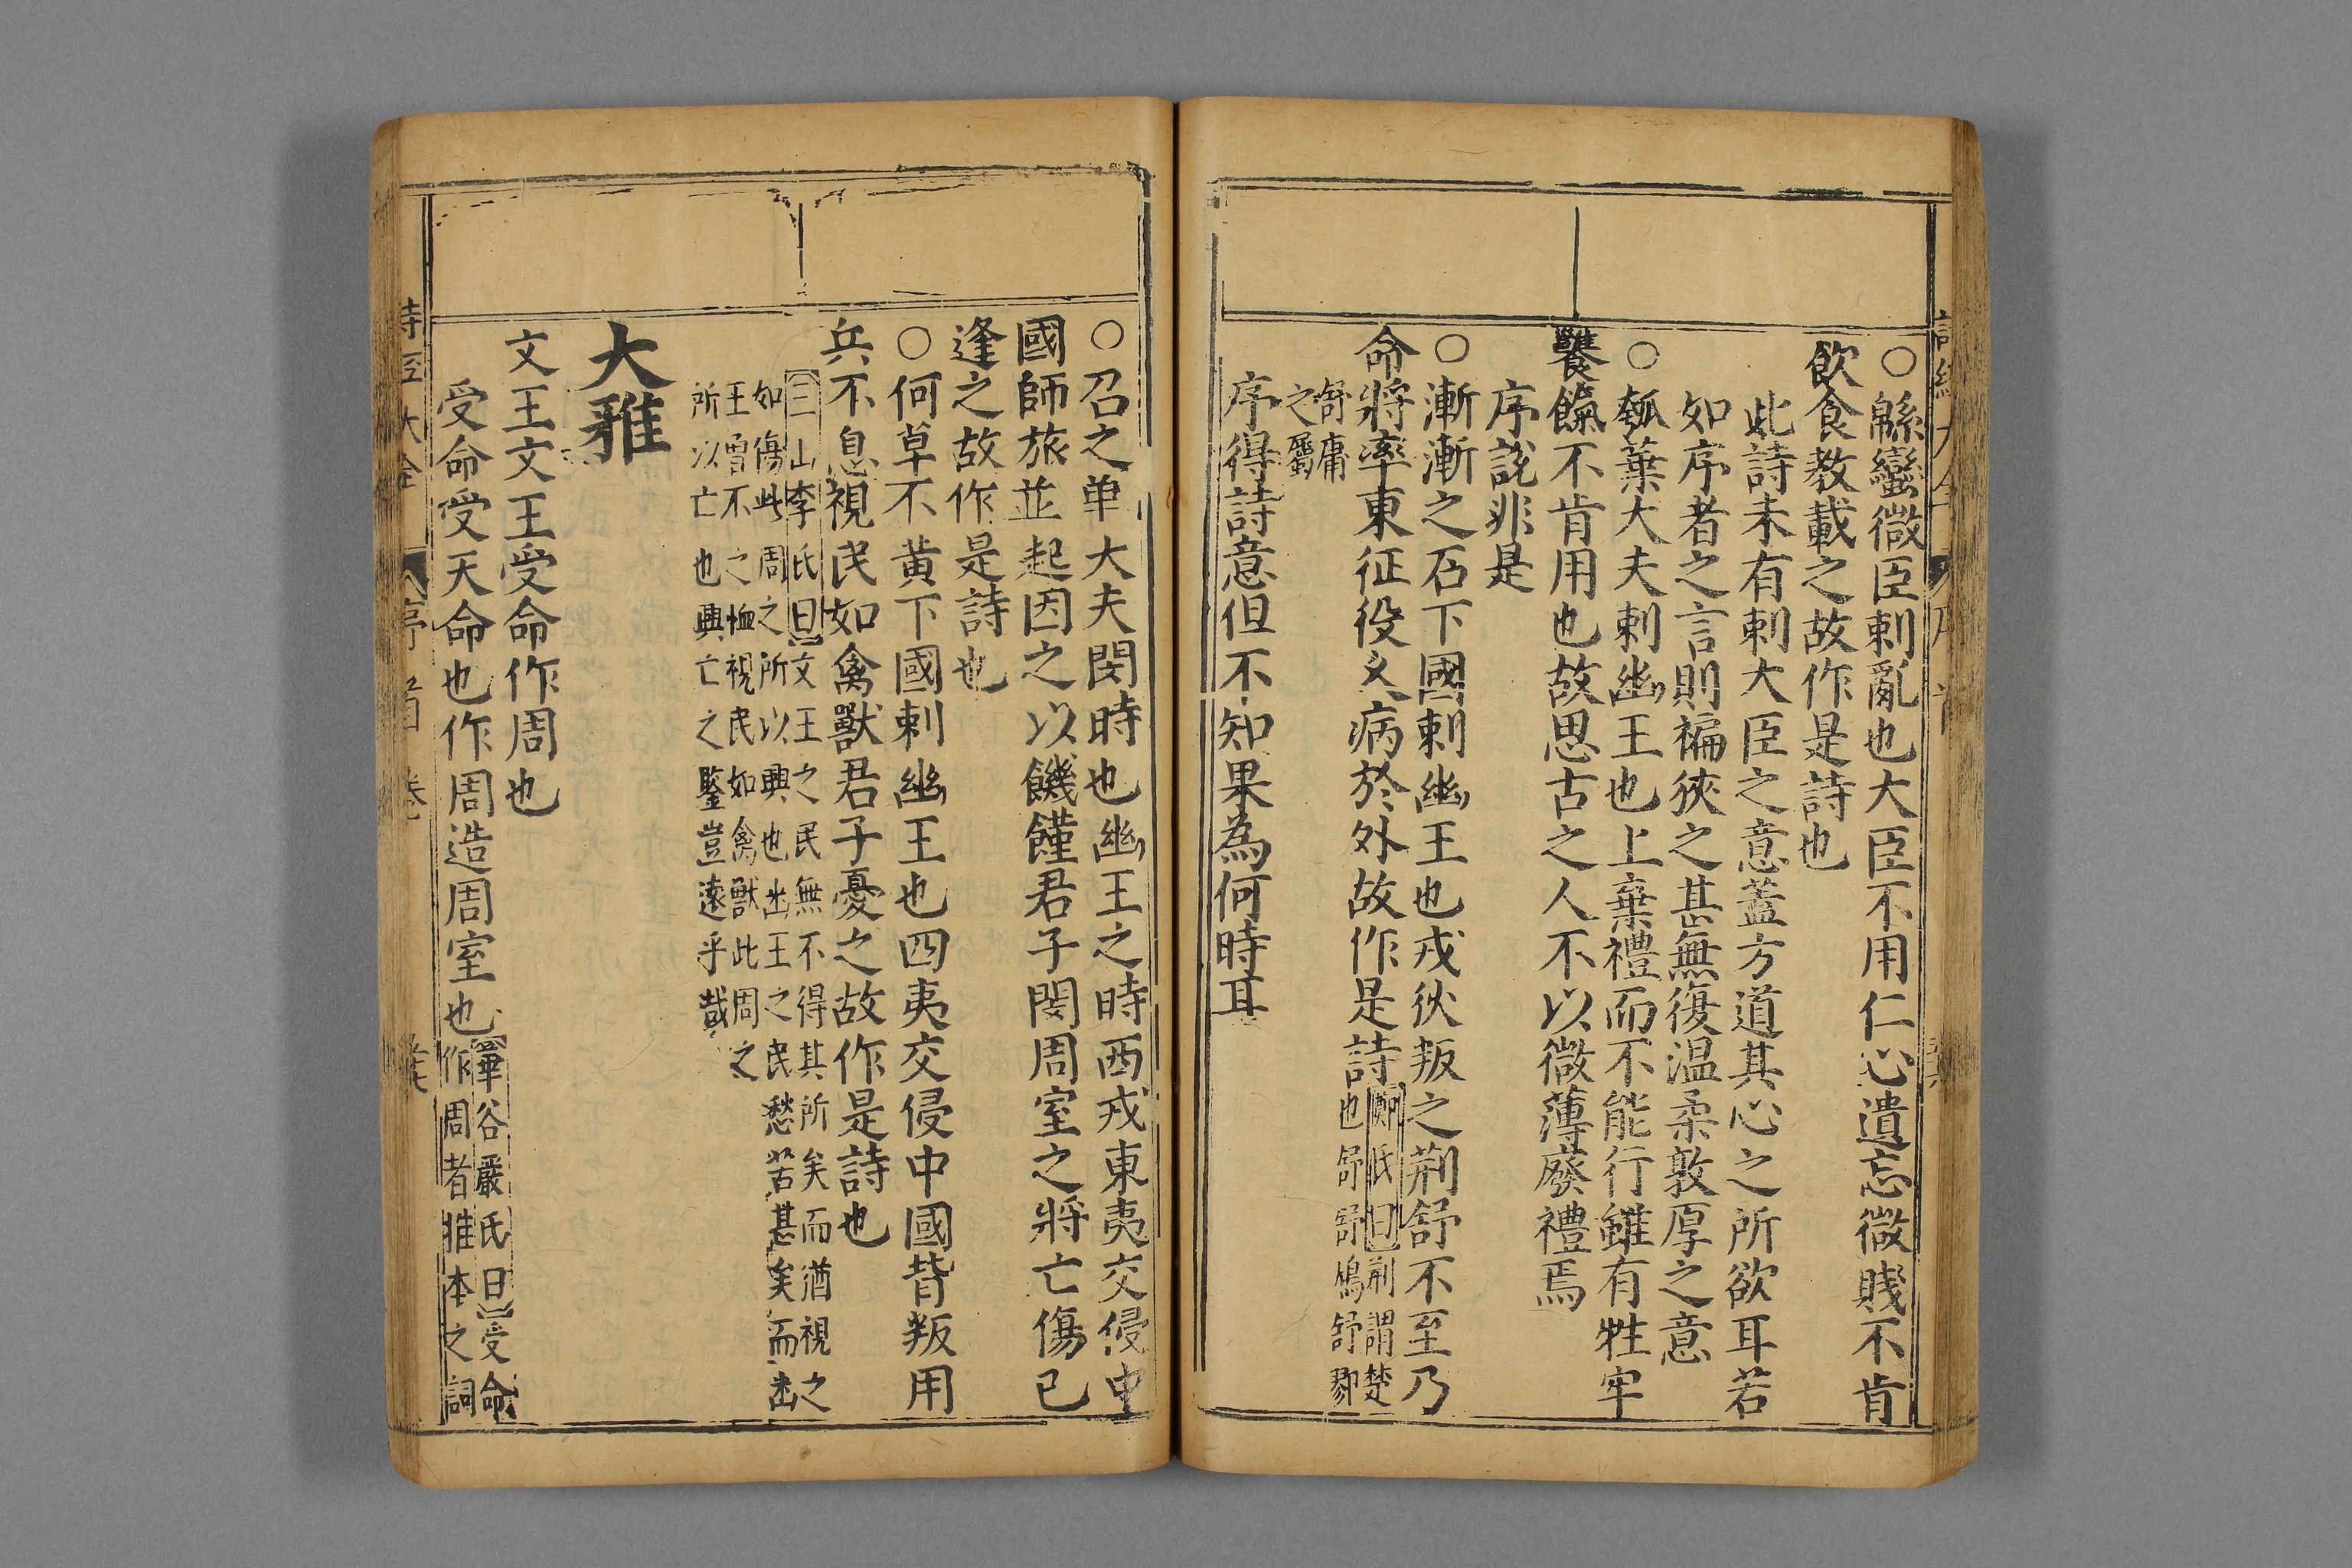 ○緜蠻微臣刺亂也大臣不用仁心遺忘微賤不肯
飲食教載之故作是詩也
此詩未有刺大臣之意蓋方道其心之所欲耳若
如序者之言則褊狹之甚無復温柔敦厚之意
○瓠葉大夫刺幽王也上棄禮而不能行雖有牲牢
饔餼不肯用也故思古之人不以微薄廢禮焉
序說非是
○漸漸之石下國刺幽王也戎狄叛之荆舒不至乃
命將率東征役久病於外故作是詩
鄭氏曰荆謂楚
也舒舒鳩舒鄝
舒庸
之屬
序得詩意但不知果為何時耳
○苕之華大夫閔時也幽王之時西戎東夷交侵中
國師旅並起因之以饑饉君子閔周室之將亡傷已
逢之故作是詩也
○何草不黄下國刺幽王也四夷交侵中國背叛用
兵不息視民如禽獸君子憂之故作是詩也
三山李氏曰文王之民無不得其所矣而猶視之
如傷此周之所以興也幽王之民愁苦甚矣而幽
王曾不之恤視民如禽獸此周之
所以亡也興亡之鑒豈遠乎哉
大雅
文王文王受命作周也
受命受天命也作周造周室也
華谷嚴氏曰受命
作周者推本之詞